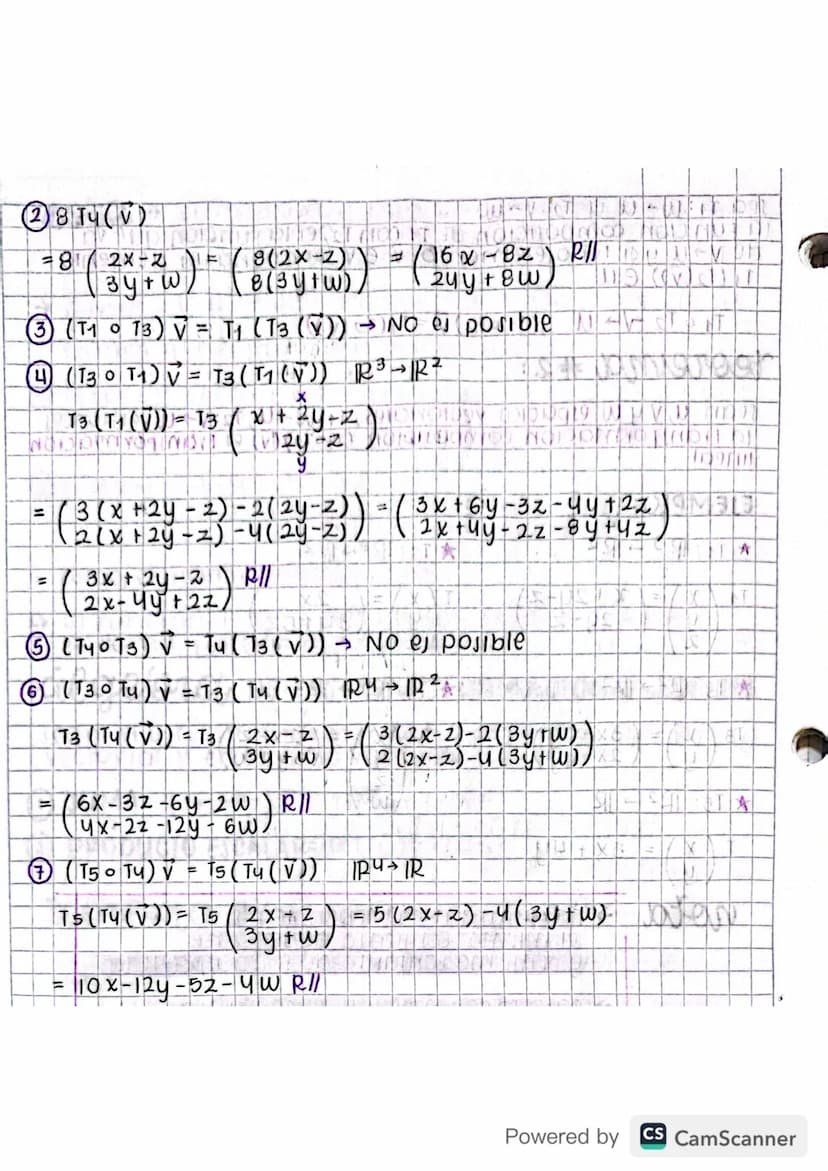 ② 8 T4(v⃗)
= 8 ( 2x-z ; 3y+w ) = ( 8(2x-z) ; 8(3y+w) ) = ( 16x - 8z ; 24y + 8w ) R//
③ (T1 o T3) v⃗ = T1 (T3 (v⃗)) → No es posible
④ (T3 o T1) v⃗ = T3 (T1 (v⃗)) ℝ³→ℝ²
x
T3 (T1(v⃗)) = T3 ( x + 2y-z ; 2y-z )
y
= ( 3(x+2y-z) -2(2y-z) ; 2(x+2y-z) -4(2y-z) ) = ( 3x+6y-3z-4y+2z ; 2x+4y-2z-8y+4z )
= ( 3x + 2y-z ; 2x-4y+2z ) R//
⑤ (T4 o T3) v⃗ = T4 (T3 (v⃗)) → No es posible
⑥ (T3 o T4) v⃗ = T3 (T4 (v⃗)) ℝ4→ℝ²
T3 (T4(v⃗)) = T3 ( 2x-z ; 3y+w ) = ( 3(2x-z)-2(3y+w) ; 2(2x-z)-4(3y+w) )
= ( 6x-3z-6y-2w ; 4x-2z-12y-6w ) R//
⑦ (T5 o T4) v⃗ = T5 (T4 (v⃗)) ℝ4→ℝ
T5 (T4(v⃗)) = T5 ( 2x-z ; 3y+w ) = 5(2x-z) -4(3y+w)
= 10x-12y-5z-4w R//
Powered by CS CamScanner